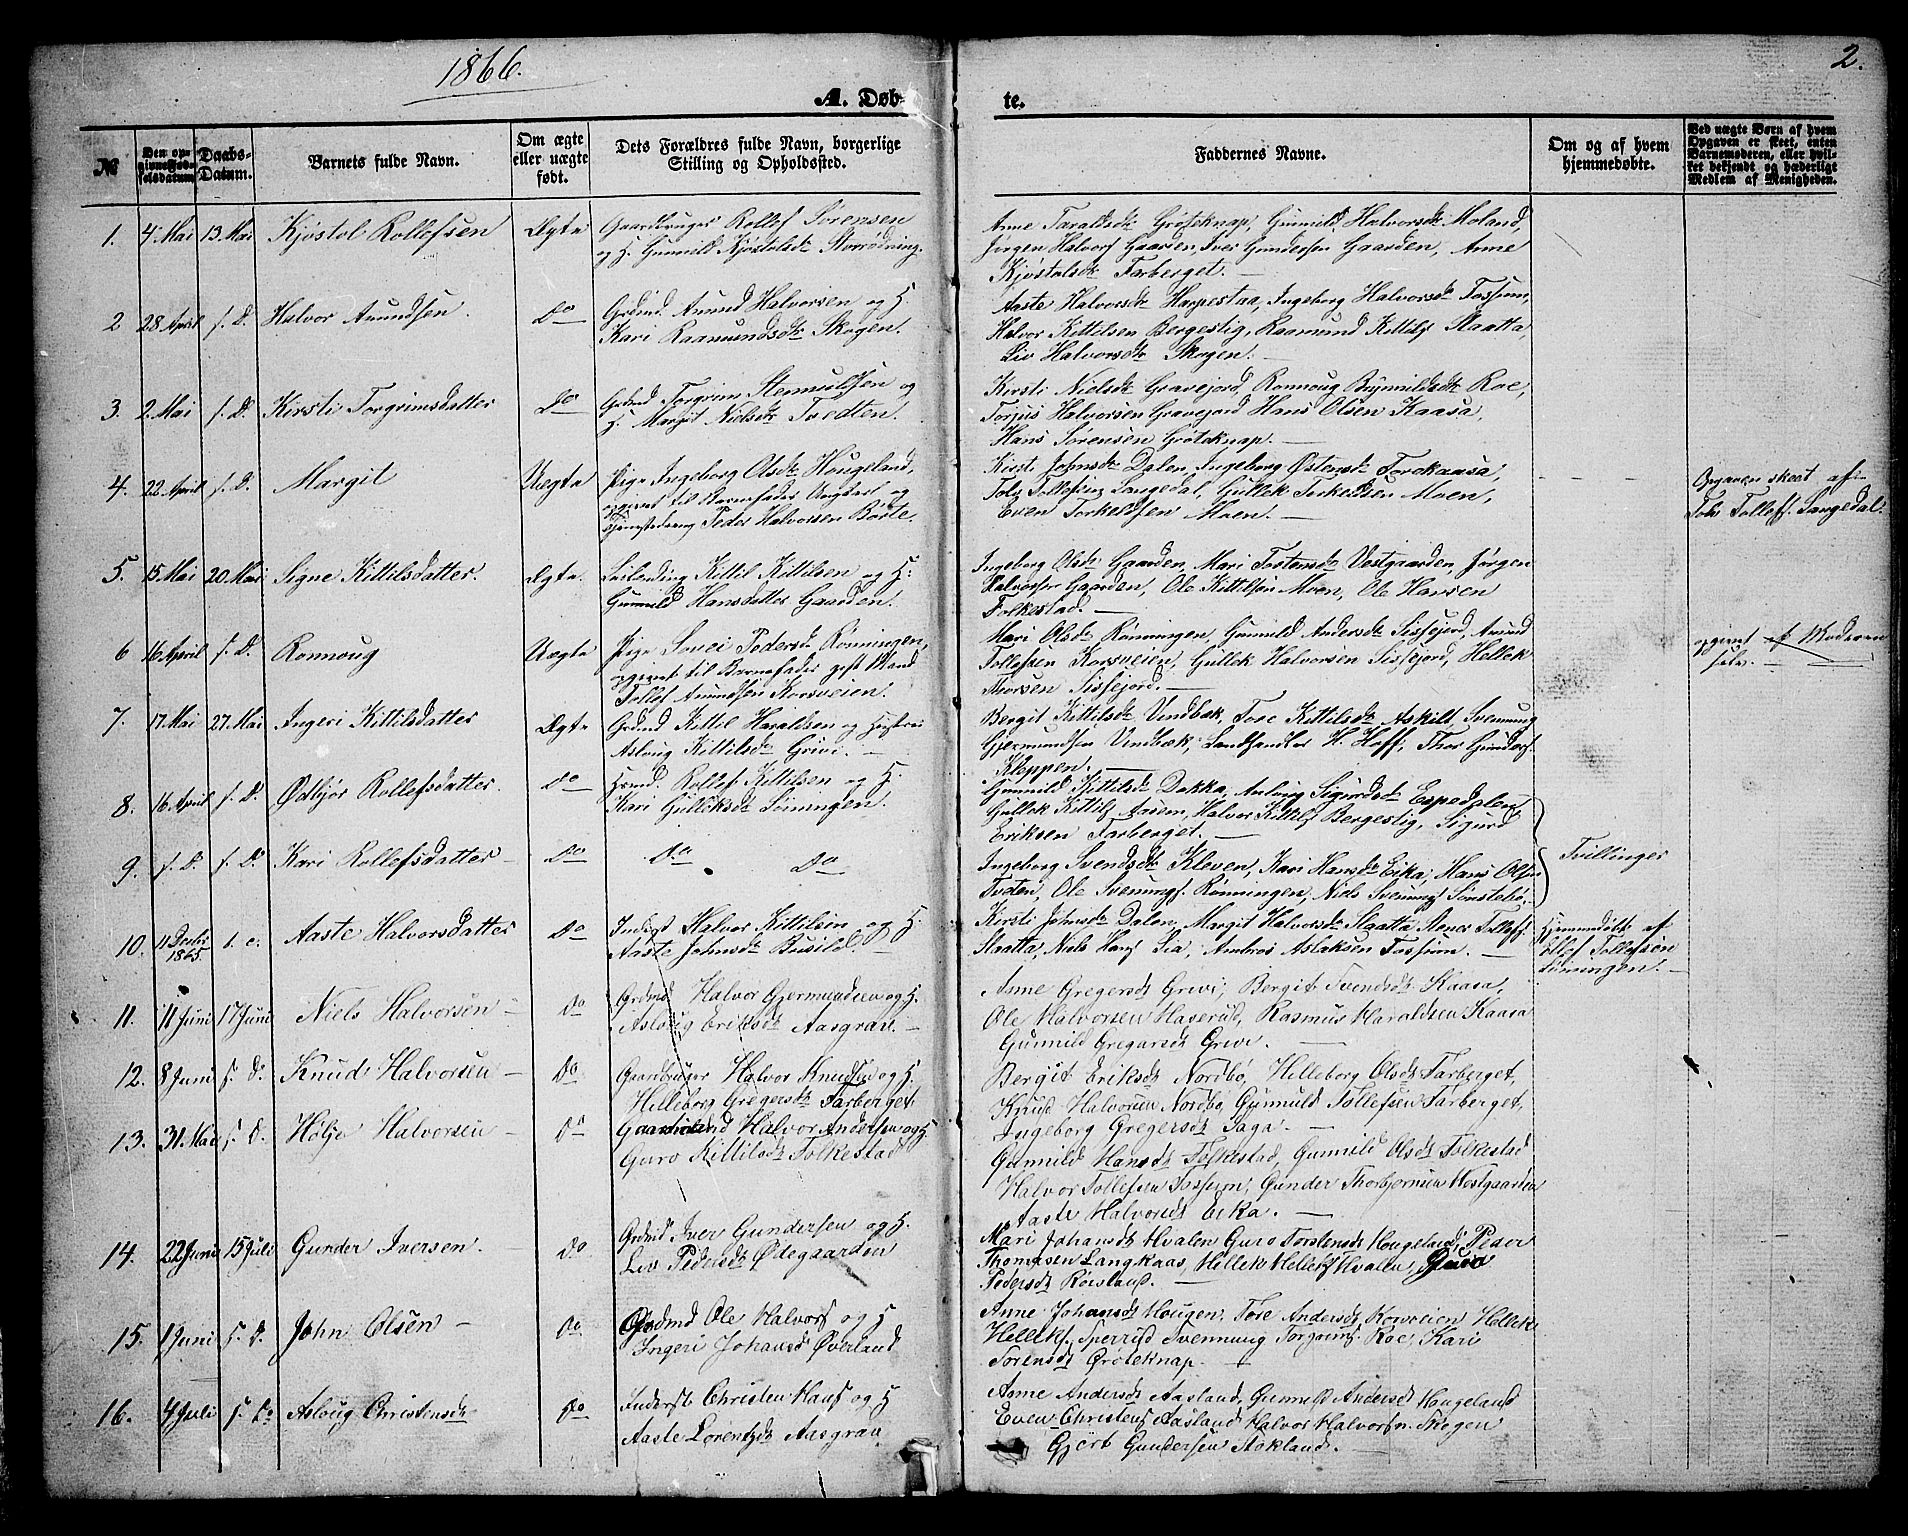 1866.
2.
A. Døb-
te.
№
Den opgivne Fødselsdatum
Daabs-Datum.
Barnets fulde Navn.
Om ægte eller uægte født.
Dets Forældres fulde Navn, borgerlige Stilling og Opholdssted.
Faddernes Navne.
Om og af hvem hjemmedøbte.
Ved uægte Børn af hvem Opgaven er skeet, enten Barnemoderen, eller hvilket bekjendt og hæderligt Medlem af Menigheden.
1. 4 Mai 13 Mai Kjøstol Rollefsen Ægte Gaardbruger Rollef Sørensen
og H. Gunnild Kjøstolsdr Storrødning.
Anne Taraldsdr Grøteknap, Gunnild Halvorsdr Moland,
Jørgen Halvors Gaarden, Iver Gundersen Gaarden, Anne
Kjøstolsdr Farberget. —
2 28 April s. D. Halvor Amundsen. Do Grdmd. Amund Halvorsen og H.
Kari Raamundsdr Skogen.
Aaste Halvorsdr Harpestaa, Ingeborg Halvorsdr Fossum,
Halvor Kittilsen Bergestig, Raamund Kittils Slaatta,
Liv Halvorsdr Skogen. —
3. 2. Mai s. D. Kirsti Torgrimsdatter Do Grdmd Torgrim Stenulfsen og
H. Margit Nielsdr Tvedten.
Kirsti Nielsdr Gravejord, Ronnoug Brynnildsdr Roe,
Torjus Halvorsen Gravejord, Hans Olsen Kaasa,
Hans Sørensen Grøteknap. —
4. 22 April s. D. Margit Uægte Pige Ingeborg Olsdr Hougeland,
opgivet til Barnefader Ungkarl og
Peder Halvorsen Børte.
Kirsti Johnsdr Dalen, Ingeborg Østensdr Torokaasa,
Tov Tollefsen Langedal, Gullek Torkeldsen Moen,
Even Torkeldsen Moen. —
Opgaven skeet af
Tov Tollefs. Langedal.
5. 15 Mai 20 Mai Signe Kittilsdatter. Ægte. Leilending Kittil Kittilsen og H:
Gunnild Hansdatter Gaarden.
Ingeborg Olsdr Gaarden, Mari Tostensdr Vestgaarden, Jørgen
Halvorsen Gaarden, Ole Kittilsen Moen, Ole Hansen
Folkestad. —
6 16 April s. D. Ronnoug Uægte Pige Pedersdr Rønningen,
opgivet til Barnefader gift Mand
Tollef Amundsen Korsveien.
Mari Olsdr Rønningen, Gunnild Andersdr Sissejord, Amund
Tollefsen Korsveien, Gullek Halvorsen Sissejord, Hellek
Thorsen Sissejord. —
opgivet af Moderen
selv. —
7. 17. Mai 27. Mai Ingeri Kittilsdatter Ægte Grdmd Kittil Haraldsen og Hustru
Aslaug Kittilsdr Grivi. —
Bergit Kittilsdr Vindbæk, Tore Kittilsdr Askilt, Svenung
Gjermundsen Vindbæk, Landhandler H. Hoff, Thor Gunders
Kleppen. —
8. 16 April s. D. Ødbjør Rollefsdatter. Do Hsmd. Rollef Kittilsen og H.
Kari Gulleksdr Lønningen.
Gunnild Kittilsdr Dakka, Aslaug Sigurdsdr Espedalen
Gullek Kittils Aasem, Halvor Kittils Bergestig, Sigurd
Eriksen Farberget. —
9. s. D. s. D. Kari Rollefsdatter — Do Do Do
Ingeborg Svendsdr Kleven, Kari Hansdr Eika, Hans Olsen
Tveten, Ole Svenungs. Rønningen, Niels Svenungs Sønstebø.
Tvillinger
10. 11 Decbr 1865. s. D. Aaste Halvorsdatter Do Inderst Halvor Kittilsen og H.
Aaste Johnsdr Busital. —
Kirsti Johnsdr Dalen, Margit Halvorsdr Slaatta, Stener Tollefs
Slaatta, Niels Hans Lia, Ambros Aslaksen Fossum. —
Hjemmedøbt af
Ellef Tollefsen
Lønningen. —
11. 11 Juni 17 Juni Niels Halvorsen — Do Grdmd Halvor Gjermundsen og H.
Aslaug Eriksdr Aasgrav. —
Anne Gregersdr Grivi, Bergit Svendsdr Kaasa,
Ole Halvorsen Haserud, Rasmus Haraldsen Kaasa
Gunnild Gregarsdr Grivi. —
12. 8 Juni s. D. Knud Halvorsen — Do Gaardbruger Halvor Knudsen og H.
Helleborg Gregersdr Farberget.
Bergit Eriksdr Nordbø, Helleborg Olsdr Farberget,
Knud Halvorsen Nordbø, Gunnuld Tollefsen Farberget,
Ingeborg Gregersdr Saga. —
13. 31 Mai s. D. Høljer Halvorsen — Do Gaardmand Halvor Andersen og H.
Guro Kittilsdr Folkestad
Gunnild Hansdr Folkestad, Gunnild Olsdr Folkestad
Halvor Tollefsen Fossum, Gunder Thorbjørnsen Vestgaarden
Aaste Halvorsdr Eika. —
14. 22 Juni 15 Juli Gunder Iversen. Do Grdmd Iver Gundersen og H.
Liv Pedersdr Ødegaarden
Mari Johansdr Hvalen, Guro Torstensdr Hougeland, Peder
Thomasen Langkaas, Hellek Helleks Hvalen, Guro
Pedersdr Rorsland. —
15. 1 Juni s. D. John Olsen — Do Grdmd Ole Halvors og H
Ingeri Johansdr Øverland
Anne Johansdr Hougen, Tore Andersdr Korsveien, Hellek
Helleks. Sperrud, Svennung Torgrims Roe, Kari
Sørensdr Grøteknap. —
16. 4 Juli s. D. Aslaug Christensdr Do Inderst Christen Hans og H
Aaste Lorentzdr Aasgrav
Anne Andersdr Aasland, Gunnild Andersdr Hougeland
Even Christens Aasland, Halvor Halvorsen Skogen
Gjert Gundersen Stokland. —